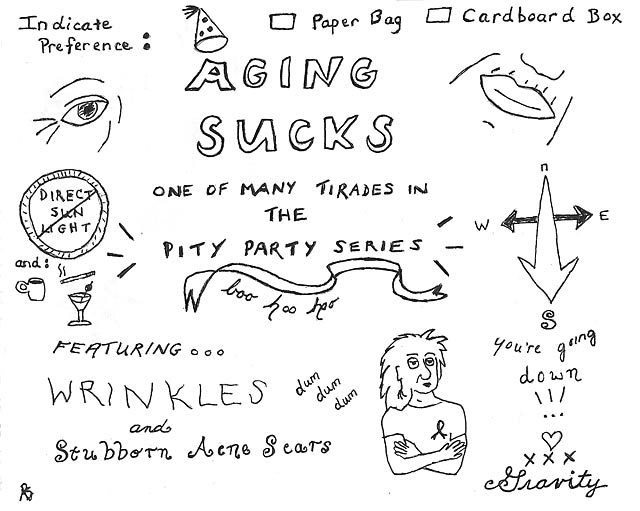 Indicate
Preference:
Paper Bag
Cardboard Box
AGING
SUCKS
ONE OF MANY TIRADES IN
THE
PITY PARTY SERIES
boo hoo hoo
DIRECT
SUN
LIGHT
and:
n
W
E
S
you're going
down
\!/
...
xxx
Gravity
FEATURING...
WRINKLES
dum
dum
dum
and
Stubborn Acne Scars